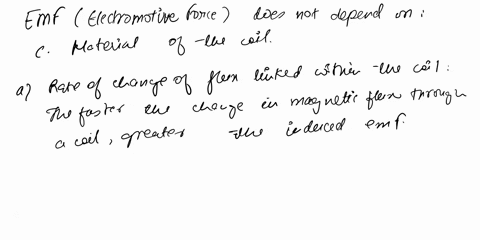 Emf (Electromotive Force) does not depend on:
c. Material of the coil.
a) Rate of change of flux linked within the coil:
The faster the change in magnetic flux through
a coil, greater the induced emf.